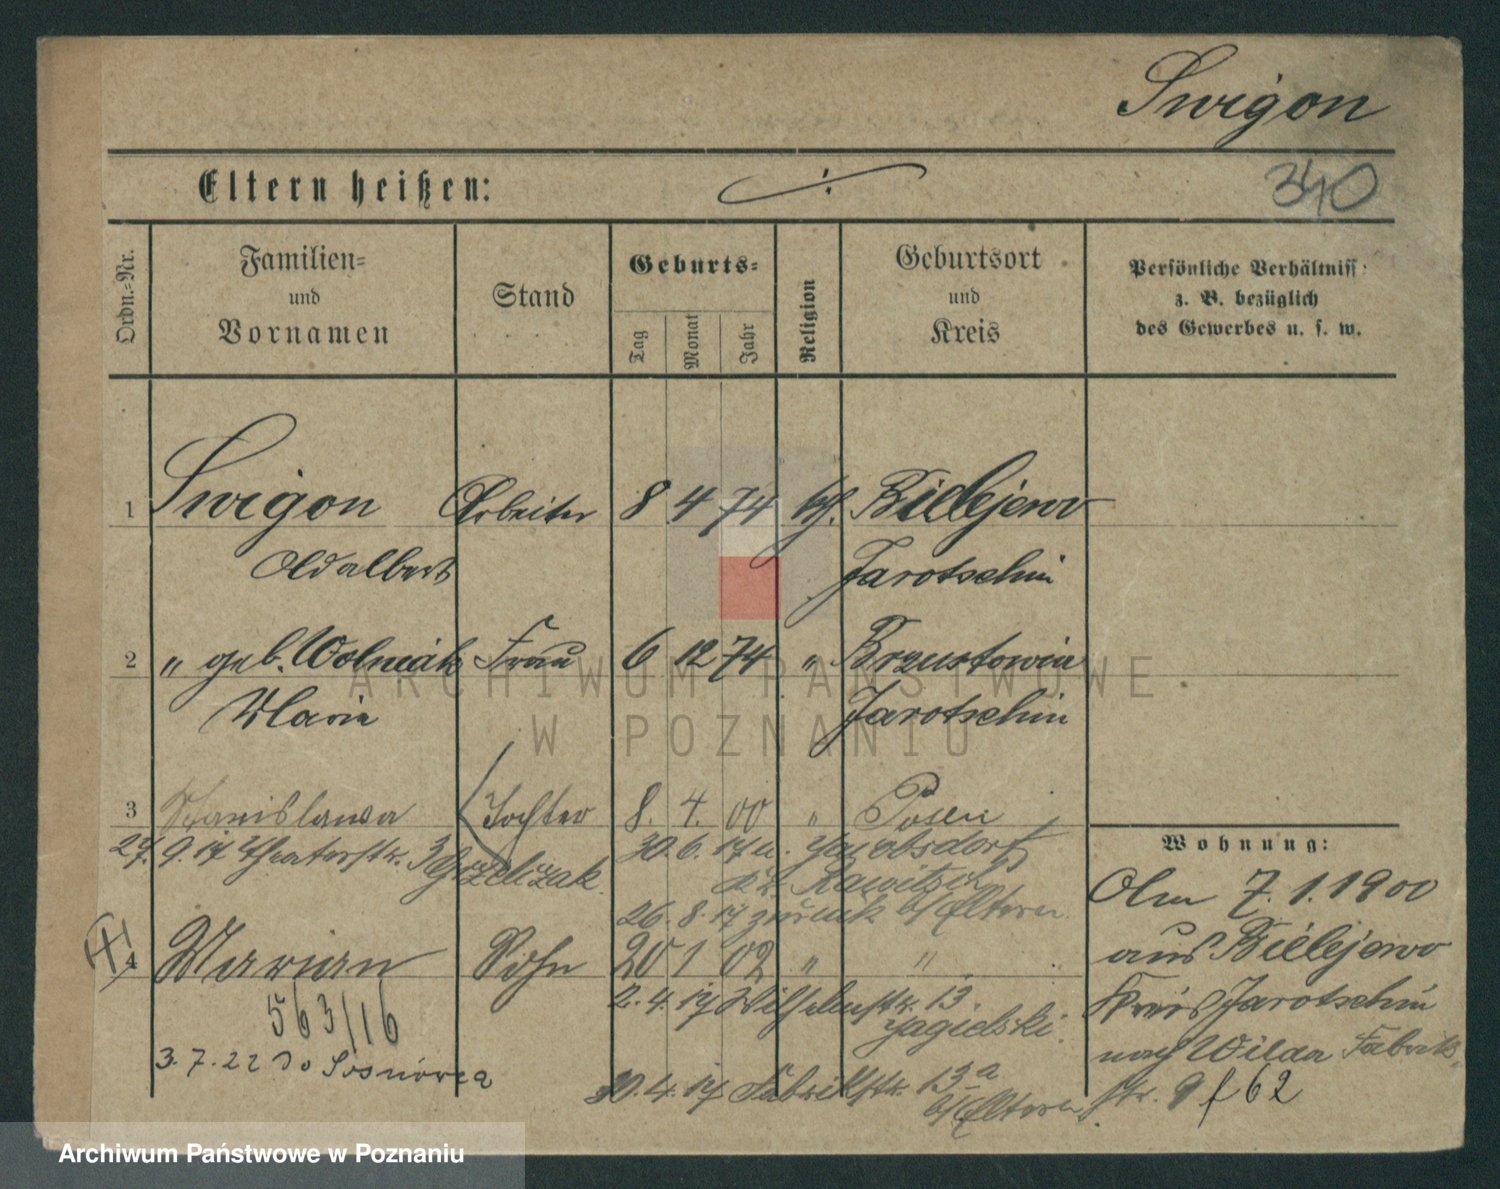 Swigon
Eltern heißen: ·/·
340
Ordn.-Nr.
Familien-
und
Vornamen
Stand
Geburts-
Tag
Monat
Jahr
Religion
Geburtsort
und
Kreis
Persönliche Verhältniss
z. B. bezüglich
des Gewerbes u. s. w.
1 Swigon Arbeiter 8 4 74 kth. Bielejewo
Adalbert Jarotschin
2 " geb. Wolniak Frau 6 12 74 " Brzustowia
Maria Jarotschin
3 Stanislawa Tochter 8. 4. 00 " Posen
27. 9. 17 Theaterstr. 3 Grzelczak.
30. 6. 17 n. Jacobsdorf
Kr. Rawitsch
26. 8. 17 zurück b/Eltern
4 Marian Sohn 20 1 02 " "
563/16
2. 4. 17 Wilhelmstr. 13.
Jagielski.
3. 7. 22 do Sosnówca
30. 4. 17 Fabrikstr. 13a
b/Eltern
Wohnung:
Am 7. 1. 1900
aus Bielejewo
Kreis Jarotschin
nach Wilda Fabrik-
str. 9 f 62
ARCHIWUM PAŃSTWOWE
W POZNANIU
Archiwum Państwowe w Poznaniu